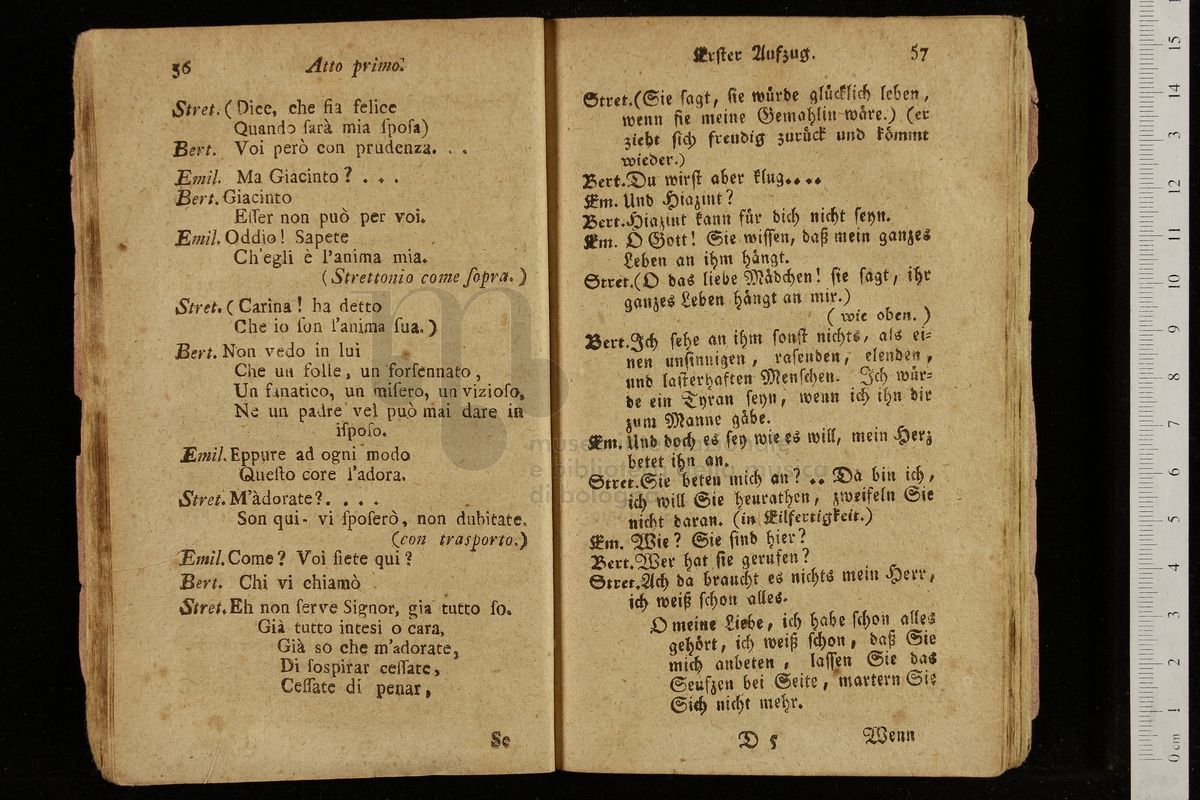 56 Atto primo.
Stret. (Dice, che ſia felice
Quando ſarà mia ſpoſa)
Bert. Voi però con prudenza. . .
Emil. Ma Giacinto? . . .
Bert. Giacinto
Eſſer non può per voi.
Emil. Oddio! Sapete
Ch'egli è l'anima mia.
(Strettonio come ſopra.)
Stret. (Carina! ha detto
Che io ſon l'anima ſua.)
Bert. Non vedo in lui
Che un folle, un forſennato,
Un fanatico, un miſero, un vizioſo,
Ne un padre vel può mai dare in
iſpoſo.
Emil. Eppure ad ogni modo
Queſto core l'adora.
Stret. M'àdorate?. . . .
Son qui- vi ſpoſerò, non dubitate.
(con traſporto.)
Emil. Come? Voi ſiete qui?
Bert. Chi vi chiamò
Stret. Eh non ſerve Signor, gia tutto ſo.
Già tutto inteſi o cara,
Già so che m'adorate,
Di ſoſpirar ceſſate,
Ceſſate di penar,
Se
Erſter Aufzug. 57
Stret. (Sie ſagt, ſie wuͤrde gluͤcklich leben,
wenn ſie meine Gemahlin waͤre.) (er
zieht ſich freudig zuruͤck und koͤmmt
wieder.)
Bert. Du wirſt aber klug....
Em. Und Hiazint?
Bert. Hiazint kann fuͤr dich nicht ſeyn.
Em. O Gott! Sie wiſſen, daß mein ganzes
Leben an ihm haͤngt.
Stret. (O das liebe Maͤdchen! ſie ſagt, ihr
ganzes Leben haͤngt an mir.)
(wie oben.)
Bert. Ich ſehe an ihm ſonſt nichts, als ei-
nen unſinnigen, raſenden, elenden,
und laſterhaften Menſchen. Ich wuͤr-
de ein Tyran ſeyn, wenn ich ihn dir
zum Manne gaͤbe.
Em. Und doch es ſey wie es will, mein Herz
betet ihn an.
Stret. Sie beten mich an? .. Da bin ich,
ich will Sie heurathen, zweifeln Sie
nicht daran. (in Eilfertigkeit.)
Em. Wie? Sie ſind hier?
Bert. Wer hat ſie gerufen?
Stret. Ach da braucht es nichts mein Herr,
ich weiß ſchon alles.
O meine Liebe, ich habe ſchon alles
gehoͤrt, ich weiß ſchon, daß Sie
mich anbeten, laſſen Sie das
Seufzen bei Seite, martern Sie
Sich nicht mehr.
D 5 Wenn